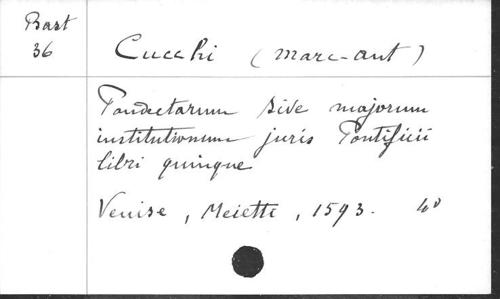 Bast
36
Cucchi (Marc-Ant)
Pandectarum sive majorum
institutionum juris Pontificii
libri quinque
Venise, Meietti, 1593. 4o